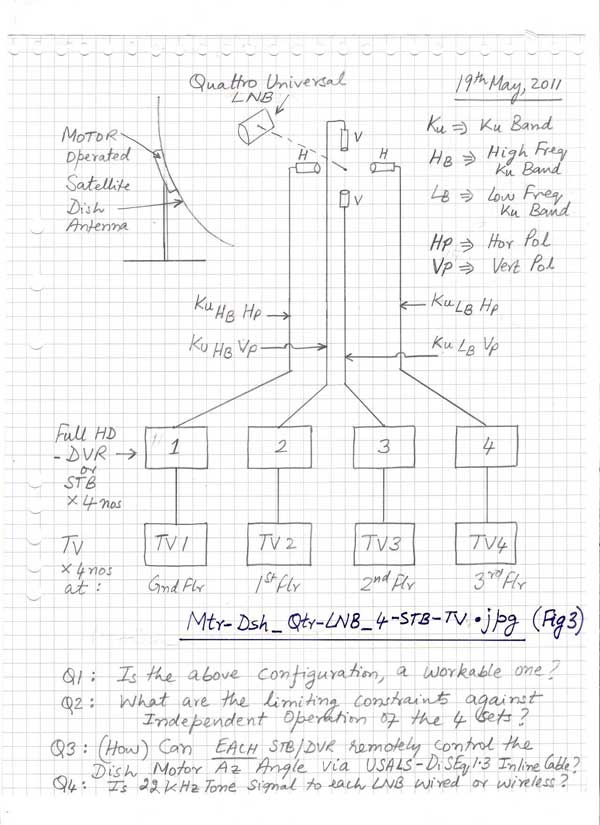 Quattro Universal
LNB
19th May, 2011
MOTOR
Operated
Satellite
Dish
Antenna
H
V
H
V
Ku ⇒ Ku Band
HB ⇒ High Freq
Ku Band
LB ⇒ Low Freq
Ku Band
HP ⇒ Hor Pol
VP ⇒ Vert Pol
Ku HB Hp
Ku LB Hp
Ku HB Vp
Ku LB Vp
Full HD
- DVR →
or
STB
× 4 nos
1
2
3
4
TV
× 4 nos
at :
TV1
TV2
TV3
TV4
Gnd Flr
1st Flr
2nd Flr
3rd Flr
Mtr-Dsh_Qtr-LNB_4-STB-TV.jpg (Fig 3)
Q1: Is the above configuration, a workable one?
Q2: What are the limiting constraints against
Independent Operation of the 4 sets?
Q3: (How) Can EACH STB/DVR remotely control the
Dish Motor Az Angle via USALS-DiSEq1.3 Inline Cable?
Q4: Is 22 KHz Tone Signal to each LNB wired or wireless?